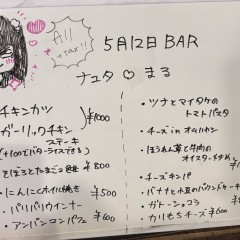 All
+tax!!
5月12日 BAR
ナユタ♡まる
チキンカツ
ガーリックチキン
ステーキ
¥1000
(+100でバターライスできる)
そぼろたまご
¥800
・にんにくホイル焼き ¥500
・パリパリウインナー
・アンパンコンパフェ ¥600
・ツナとマイタケの
トマトパスタ
・チーズinオムハヤシ
・ほうれん草と牛肉の
オイスター炒め
・チーズキンパ
・バナナと小豆のパウンドケーキ
・ガトーショコラ
・カリもちチーズ ¥600